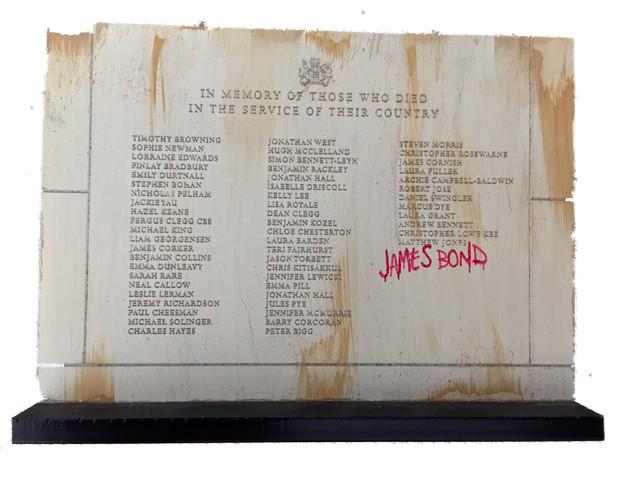 IN MEMORY OF THOSE WHO DIED
IN THE SERVICE OF THEIR COUNTRY
TIMOTHY BROWNING
SOPHIE NEWMAN
LORRAINE EDWARDS
FINLAY BRADBURY
EMILY DURTNALL
STEPHEN BOHAN
NICHOLAS PELHAM
JACKIE YAU
HAZEL KEANE
FERGUS CLEGG CBE
MICHAEL KING
LIAM GEORGENSEN
JAMES CORKER
BENJAMIN COLLINS
EMMA DUNLEAVY
SARAH RARE
NEAL CALLOW
LESLIE LERMAN
JEREMY RICHARDSON
PAUL CHEESMAN
MICHAEL SOLINGER
CHARLES HAYES
JONATHAN WEST
HUGH MCCLELLAND
SIMON BENNETT-LEYH
BENJAMIN RACKLEY
JONATHAN HALL
ISABELLE DRISCOLL
KELLY LEE
LISA ROYALE
DEAN CLEGG
BENJAMIN KOZEL
CHLOE CHESTERTON
LAURA BARDEN
TERI FAIRHURST
JASON TORBETT
CHRIS KITISAKKUL
JENNIFER LEWICKI
EMMA PILL
JONATHAN HALL
JULES PYE
JENNIFER MCMURRIE
BARRY CORCORAN
PETER BIGG
STEVEN MORRIS
CHRISTOPHER ROSEWARNE
JAMES CORNISH
LAURA FULLER
ARCHIE CAMPBELL-BALDWIN
ROBERT JOSE
DANIEL SWINGLER
MARCUS DYE
LAURA GRANT
ANDREW BENNETT
CHRISTOPHER LOWE KBE
MATTHEW JONES
JAMES BOND